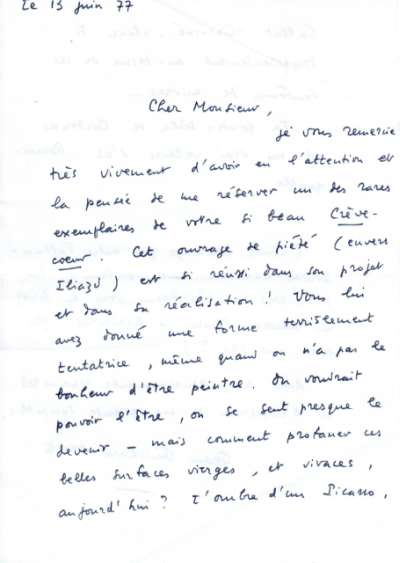 Le 13 juin 77
Cher Monsieur,
je vous remercie
très vivement d'avoir eu l'attention et
la pensée de me réserver un des rares
exemplaires de votre si beau Crève-
coeur. Cet ouvrage de piété (envers
Iliazd) est si réussi dans son projet
et dans sa réalisation ! Vous lui
avez donné une forme terriblement
tentatrice, même quand on n'a pas le
bonheur d'être peintre. On voudrait
pouvoir l'être, on se sent presque le
devenir – mais comment profaner ces
belles surfaces vierges, et vivaces,
aujourd'hui ? L'ombre d'un Picasso,